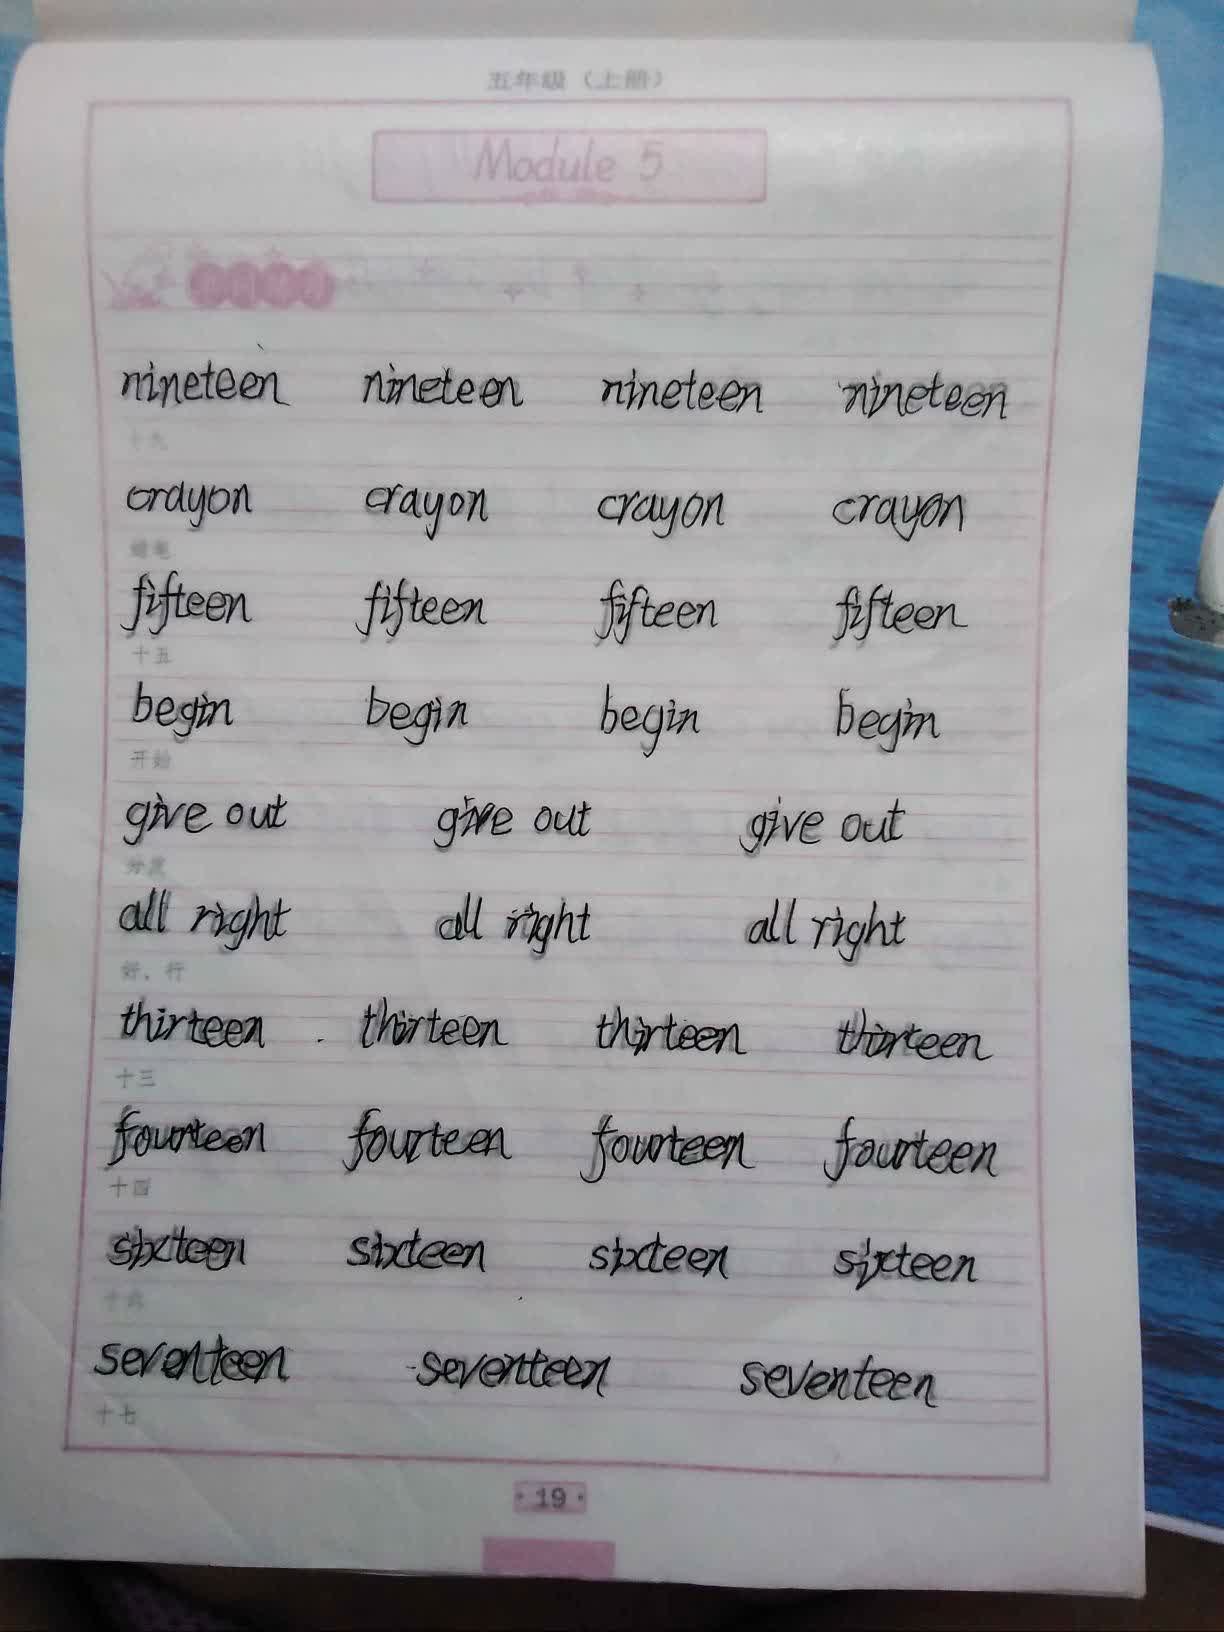 五年级（上册）
Module 5
nineteen nineteen nineteen nineteen
十九
crayon crayon crayon crayon
蜡笔
fifteen fifteen fifteen fifteen
十五
begin begin begin begin
开始
give out give out give out
分发
all right all right all right
好，行
thirteen thirteen thirteen thirteen
十三
fourteen fourteen fourteen fourteen
十四
sixteen sixteen sixteen sixteen
十六
seventeen seventeen seventeen
十七
·19·